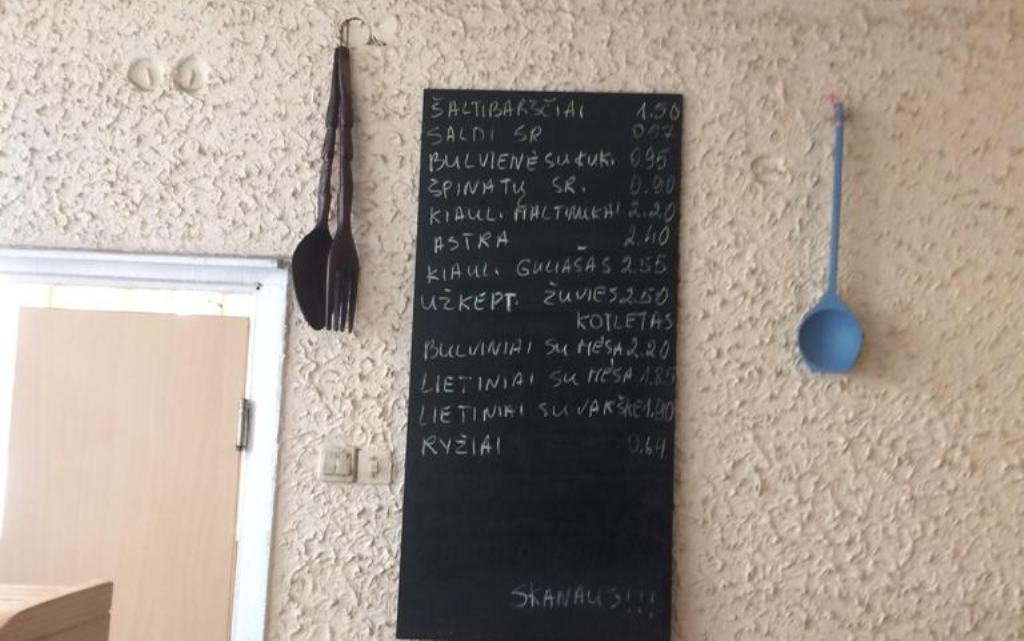 ŠALTIBARŠČIAI 1.50
SALDI SR 0.97
BULVIENĖ SU KUK. 0.95
ŠPINATŲ SR. 0.90
KIAUL. MALTINUKAI 2.20
ASTRA 2.40
KIAUL. GULIAŠAS 2.55
UŽKEPT. ŽUVIES 2.50
KOTLETAS
BULVINIAI SU MĖSA 2.20
LIETINIAI SU MĖSA 1.85
LIETINIAI SU VARŠKE 1.90
RYŽIAI 0.64
SKANAUS!!!